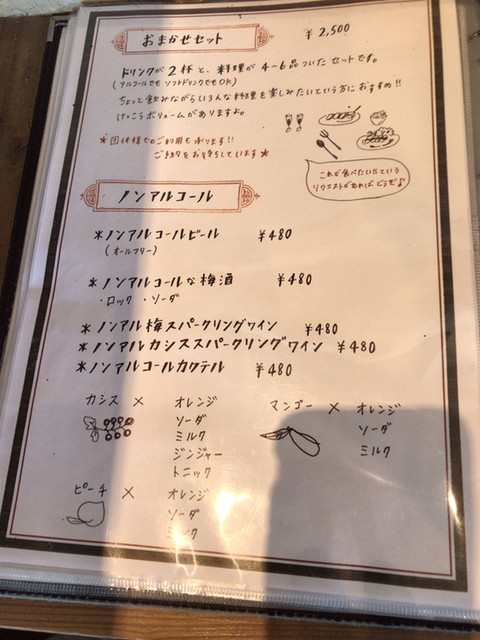 おまかせセット ¥2,500
ドリンクが2杯と、料理が4~6品ついたセットです。
(アルコールでも ソフトドリンクでもOK)
ちょっと飲みながらいろんな料理を楽しみたいという方におすすめ!!
けっこうボリュームがありますよ。
*団体様でのご利用も承ります!!
ご予約をお待ちしています*
これが食べたいたという
リクエストがあればどうぞ♪
ノンアルコール
*ノンアルコールビール ¥480
(オールフリー)
*ノンアルコールな梅酒 ¥480
・ロック ・ソーダ
*ノンアル梅スパークリングワイン ¥480
*ノンアルカシススパークリングワイン ¥480
*ノンアルコールカクテル ¥480
カシス × オレンジ
ソーダ
ミルク
ジンジャー
トニック
マンゴー × オレンジ
ソーダ
ミルク
ピーチ × オレンジ
ソーダ
ミルク